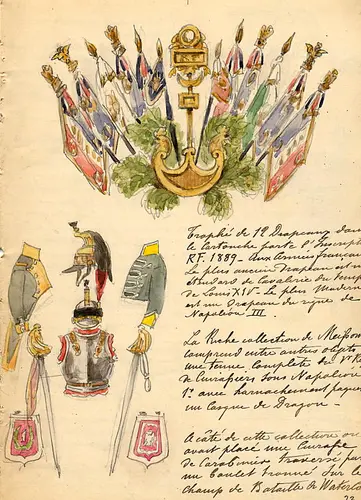 Trophée de 12 Drapeaux dans
le Cartouche porte l'Inscrip
R.F. 1889 - aux Armées françai
Le plus ancien Drapeau est
Etendard de Cavalerie du temps
de Louis XIV - Le plus moderne
est un Drapeau du règne de
Napoléon III.
La Riche collection de Meisson
comprend entre autres objets
une tenue complete de
de Cuirassiers sous Napoléon
1er avec harnachement
un Casque de Dragon -
A côté de cette collection on
avait placé une Cuirasse
de Carabinier traversée par
un Boulet trouvé sur le
champ de Bataille de Waterlo